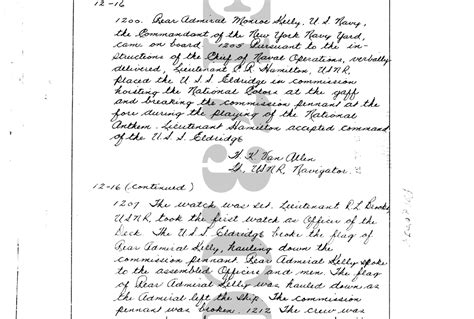 12-16
1200. Rear Admiral Monroe Kelly, U.S. Navy,
the Commandant of the New York Navy Yard,
came on board. 1205 Pursuant to the in-
structions of the Chief of Naval Operations, verbally
delivered, Lieutenant C.R. Hamilton, USNR,
placed the U.S.S. Eldridge in commission
hoisting the National Colors at the gaff
and breaking the commission pennant at the
fore during the playing of the National
Anthem. Lieutenant Hamilton accepted command
of the U.S.S. Eldridge
H. K. Van Allen
Lt., USNR, Navigator.
12-16 (continued)
1207 The watch was set. Lieutenant R.L. Brooks,
USNR, took the first watch as Officer of the
Deck. The U.S.S. Eldridge broke the flag of
Rear Admiral Kelly, hauling down the
commission pennant. Rear Admiral Kelly spoke
to the assembled Officers and men. The flag
of Rear Admiral Kelly was hauled down as
the Admiral left the ship. The commission
pennant was broken. 1212 The crew was